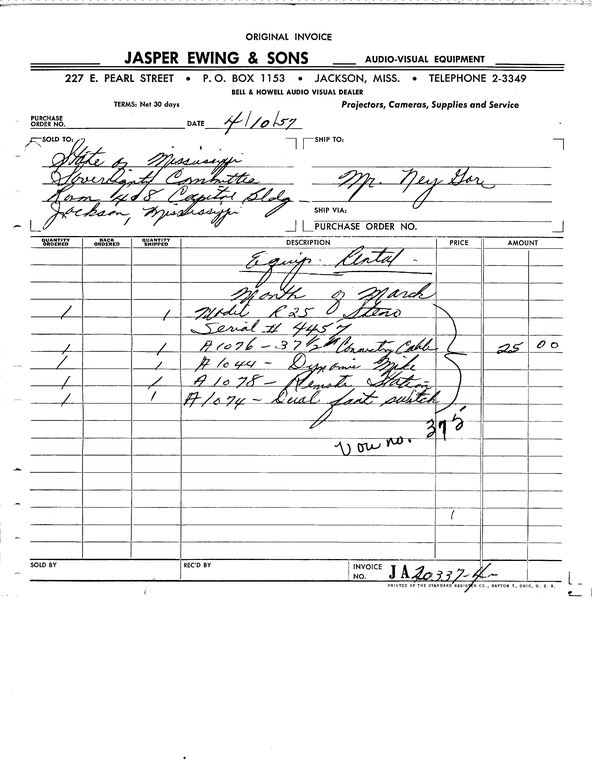 ORIGINAL INVOICE
JASPER EWING & SONS AUDIO-VISUAL EQUIPMENT
227 E. PEARL STREET • P. O. BOX 1153 • JACKSON, MISS. • TELEPHONE 2-3349
BELL & HOWELL AUDIO VISUAL DEALER
TERMS: Net 30 days Projectors, Cameras, Supplies and Service
PURCHASE ORDER NO. DATE 4/10/57
SOLD TO: SHIP TO:
State of Mississippi
Sovereignty Committee Mr. Ney Gore
Room 408 Capitol Bldg
Jackson, Mississippi SHIP VIA:
PURCHASE ORDER NO.
QUANTITY ORDERED BACK ORDERED QUANTITY SHIPPED DESCRIPTION PRICE AMOUNT
Equip. Rental -
Month of March
1 1 Model R25 Steno
Serial # 4457
1 1 A1076 - 37 1/2" Connecting Cable 25 00
1 1 A1044 - Dynamic Mike
1 1 A1078 - Remote Station
1 1 A1074 - Dual foot switch
Vou no. 375
SOLD BY REC'D BY INVOICE NO. JA20337-4-
PRINTED BY THE STANDARD REGISTER CO., DAYTON 1, OHIO, U. S. A.